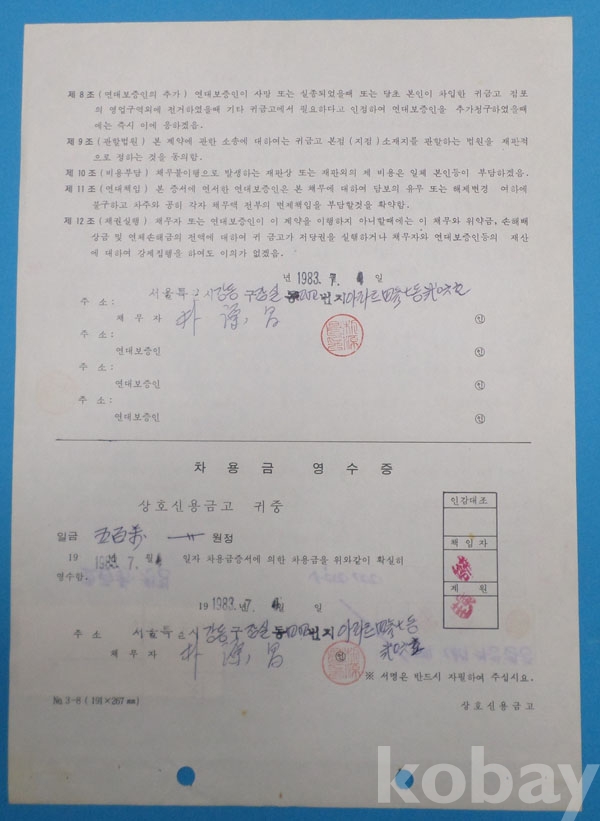 제 8 조 (연대보증인의 추가) 연대보증인이 사망 또는 실종되었을때 또는 당초 본인이 차입한 귀금고 점포
의 영업구역외에 전거하였을때 기타 귀금고에서 필요하다고 인정하여 연대보증인을 추가청구하였을때
에는 즉시 이에 응하겠음.
제 9 조 (관할법원) 본 계약에 관한 소송에 대하여는 귀금고 본점 (지점) 소재지를 관할하는 법원을 재판적
으로 정하는 것을 동의함.
제 10 조 (비용부담) 채무불이행으로 발생하는 재판상 또는 재판외의 제 비용은 일체 본인등이 부담하겠음.
제 11 조 (연대책임) 본 증서에 연서한 연대보증인은 본 채무에 대하여 담보의 유무 또는 해제변경 여하에
불구하고 차주와 공히 각자 채무액 전부의 변제책임을 부담할것을 확약함.
제 12 조 (채권실행) 채무자 또는 연대보증인이 이 계약을 이행하지 아니할때에는 이 채무와 위약금, 손해배
상금 및 연체손해금의 전액에 대하여 귀 금고가 저당권을 실행하거나 채무자와 연대보증인등의 재산
에 대하여 강제집행을 하여도 이의가 없겠음.
년 1983. 7. 일
주 소 : 서울특 시 강동구 잠실 번지 아파트
채 무 자 朴
주 소 :
연대보증인 ㊞
주 소 :
연대보증인 ㊞
주 소 :
연대보증인 ㊞
차 용 금 영 수 증
상호신용금고 귀중
인감대조
책 임 자
계 원
일금 五百萬 원정
19 1983. 7. 월 일자 차용금증서에 의한 차용금을 위와같이 확실히
영수함.
19 1983. 7. 월 일
주 소 서울특 시 강동구 잠실 번지 아파트
채 무 자 朴 ㊞
※ 서명은 반드시 자필하여 주십시요.
No. 3-8 (191×267㎜)
상호신용금고
kobay